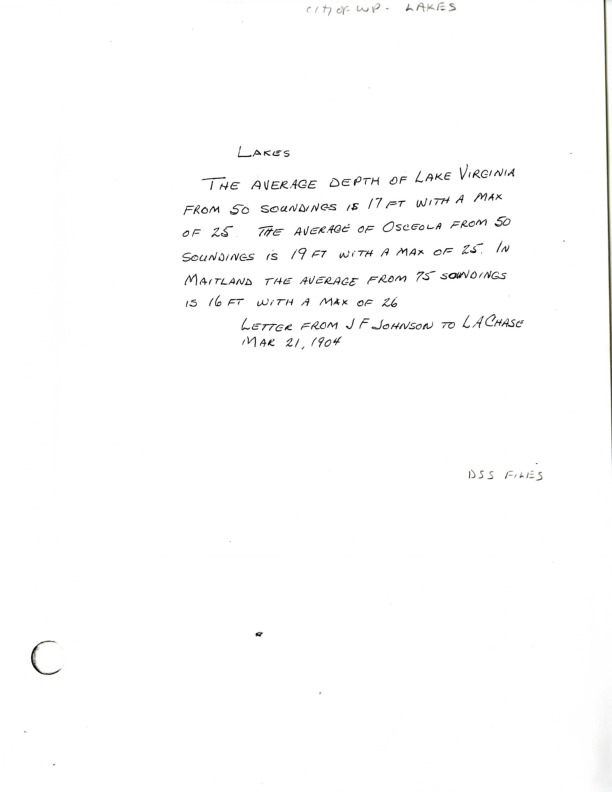 City of WP - LAKES
LAKES
THE AVERAGE DEPTH OF LAKE VIRGINIA
FROM 50 SOUNDINGS IS 17 FT WITH A MAX
OF 25. THE AVERAGE OF OSCEOLA FROM 50
SOUNDINGS IS 19 FT WITH A MAX OF 25. IN
MAITLAND THE AVERAGE FROM 75 SOUNDINGS
IS 16 FT WITH A MAX OF 26
LETTER FROM J F JOHNSON TO L A CHASE
MAR 21, 1904
DSS FILES